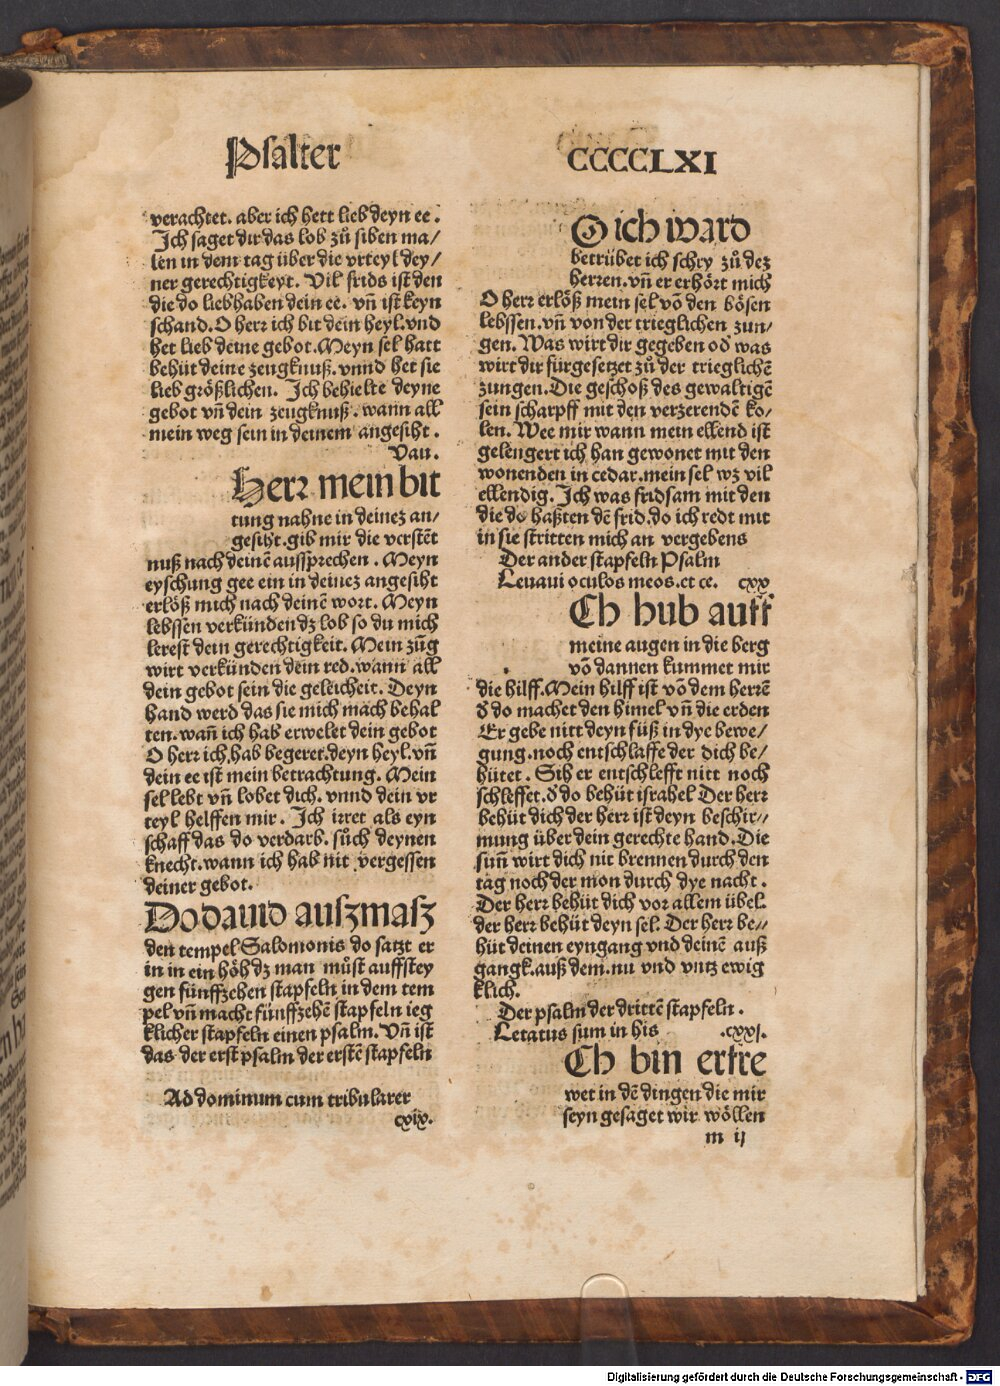 Psalter
CCCCCLXI
verachtet. aber ich hett lieb deyn ee.
Ich saget dir das lob zů siben ma/
len in dem tag über die vrteyl dey/
ner gerechtigkeyt. Vil frids ist den
die do liebhaben dein ee. vñ ist keyn
schand. O herr ich bit dein heyl. vnd
het lieb deine gebot. Meyn sel hatt
behüt deine zeugknuß. vnnd het sie
lieb größlichen. Ich behielte deyne
gebot vñ dein zeugknuß. wann all
mein weg sein in deinem angesiht.
Vau.
Herr mein bit
tung nahne in deineʒ an/
gesiht. gib mir die verstẽt
nuß nach deinẽ aussprechen. Meyn
eyschung gee ein in deineʒ angesiht
erlöß mich nach deinẽ wort. Meyn
lebssen verkünden dʒ lob so du mich
lerest dein gerechtigkeit. Mein züg̃
wirt verkünden dein red. wann all
dein gebot sein die geleicheit. Deyn
hand werd das sie mich mach behal
ten. wañ ich hab erwelet dein gebot
O herr ich hab begeret deyn heyl. vñ
dein ee ist mein betrachtung. Mein
sel lebt vñ lobet dich. vnnd dein vr
teyl helffen mir. Ich irret als eyn
schaff das do verdarb. sůch deynen
knecht. wann ich hab nit vergessen
deiner gebot.
Do dauid auszmasz
den tempel Salomonis do satzt er
in in ein höh dʒ man můst auffstey
gen fünffzehen stapfeln in dem tem
pel vñ macht fünffzehẽ stapfeln ieg
klicher stapfeln einen psalm. Vñ ist
das der erst psalm der erstẽ stapfeln
Ad dominum cum tribularer
cxix.
O ich ward
betrübet ich schry zů deʒ
herren. vñ er erhört mich
O herr erlöß mein sel võ den bösen
lebssen. vñ von der trieglichen zun/
gen. Was wirt dir gegeben od was
wirt dir fürgesetzet zů der trieglichẽ
zungen. Die geschoß des gewaltigẽ
sein scharpff mit den verzerendẽ ko/
len. Wee mir wann mein ellend ist
gelengert ich han gewonet mit den
wonenden in cedar. mein sel wʒ vil
ellendig. Ich was fridsam mit den
die do haßten dẽ frid. do ich redt mit
in sie stritten mich an vergebens
Der ander stapfeln Psalm
Leuaui oculos meos. et ce. cxx
Ch hub auff
meine augen in die berg
võ dannen kummet mir
die hilff. Mein hilff ist võ dem herrẽ
ð do machet den himel vñ die erden
Er gebe nitt deyn füß in dye bewe/
gung. noch entschlaffe der dich be/
hütet. Sih er entschlefft nitt noch
schleffet. ð do behüt israhel Der herr
behüt dich der herr ist deyn beschir//
mung über dein gerechte hand. Die
suñ wirt dich nit brennen durch den
tag noch der mon durch dye nacht.
Der herr behüt dich vor allem übel.
der herr behüt deyn sel. Der herr be//
hüt deinen eyngang vnd deinẽ auß
gangk. auß dem. nu vnd vntz ewig
klich.
Der psalm der drittẽ stapfeln.
Letatus sum in his .cxxj.
Ch bin erfre
wet in dẽ dingen die mir
seyn gesaget wir wöllen
m ij
Digitalisierung gefördert durch die Deutsche Forschungsgemeinschaft - DFG